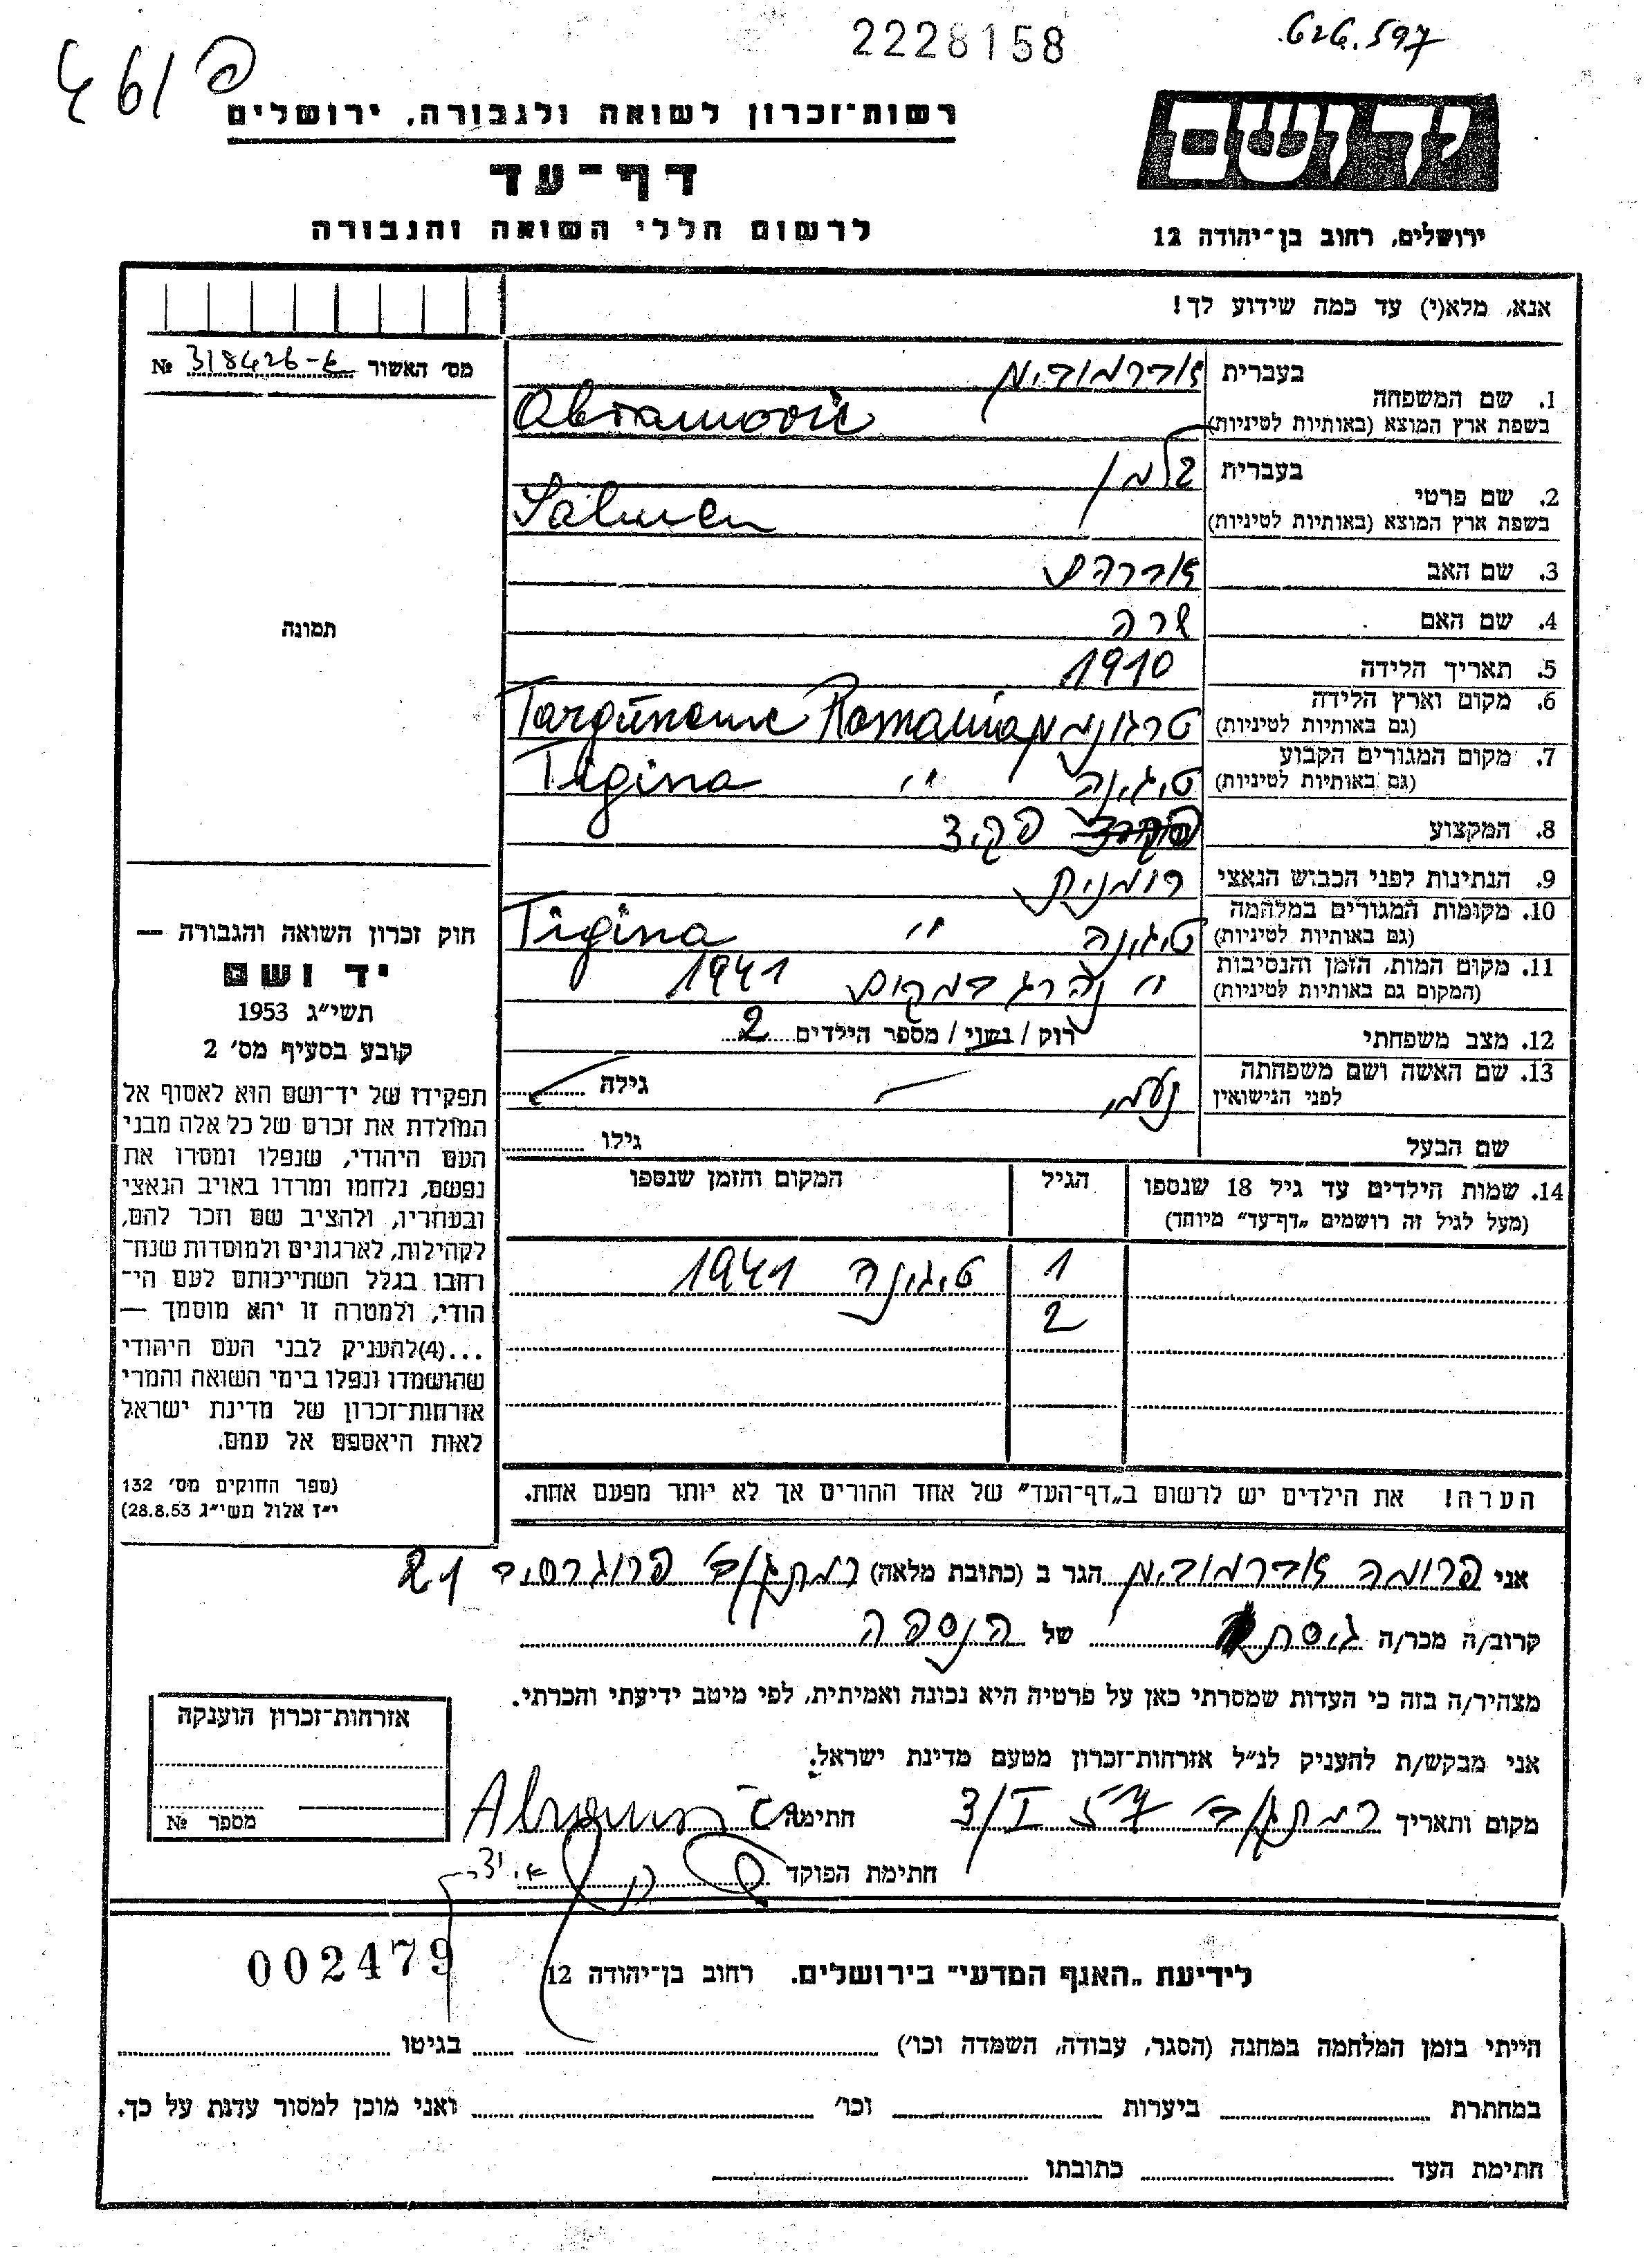 2228158
626.597
461 פ
רשות־זכרון לשואה ולגבורה, ירושלים
יד ושם
דף־עד
לרשום חללי השואה והגבורה
ירושלים, רחוב בן־יהודה 12
אנא, מלא(י) עד כמה שידוע לך!
מס׳ האשור 318426-ב №
1. שם המשפחה בעברית אברמוביץ
בשפת ארץ המוצא (באותיות לטיניות) Abramovic
2. שם פרטי בעברית זלמן
בשפת ארץ המוצא (באותיות לטיניות) Salmen
3. שם האב אברהם
4. שם האם שרה
5. תאריך הלידה 1910
6. מקום וארץ הלידה (גם באותיות לטיניות) טרגונמץ Romania
7. מקום המגורים הקבוע (גם באותיות לטיניות) טיגינה " Tigina
8. המקצוע פקיד
9. הנתינות לפני הכבוש הנאצי רומנית
10. מקומות המגורים במלחמה (גם באותיות לטיניות) טיגינה " Tigina
11. מקום המות, הזמן והנסיבות (המקום גם באותיות לטיניות) " נהרג במקום 1941
12. מצב משפחתי רוק / נשוי / מספר הילדים 2
13. שם האשה ושם משפחתה לפני הנישואין נעמי — גילה
שם הבעל גילו
14. שמות הילדים עד גיל 18 שנספו
(מעל לגיל זה רושמים „דף־עד״ מיוחד)
הגיל
המקום והזמן שנספו
1 טיגינה 1941
2
הערה! את הילדים יש לרשום ב„דף־העד״ של אחד ההורים אך לא יותר מפעם אחת.
תמונה
חוק זכרון השואה והגבורה —
יד ושם
תשי״ג 1953
קובע בסעיף מס׳ 2
תפקידו של יד־ושם הוא לאסוף אל
המולדת את זכרם של כל אלה מבני
העם היהודי, שנפלו ומסרו את
נפשם, נלחמו ומרדו באויב הנאצי
ובעוזריו, ולהציב שם וזכר להם,
לקהילות, לארגונים ולמוסדות שנח־
רבו בגלל השתייכותם לעם הי־
הודי, ולמטרה זו יהא מוסמך —
...(4)להעניק לבני העם היהודי
שהושמדו ונפלו בימי השואה והמרי
אזרחות־זכרון של מדינת ישראל
לאות היאספם אל עמם.
(ספר החוקים מס׳ 132
י״ז אלול תשי״ג 28.8.53)
אני פרומה אברמוביץ הגר ב (כתובת מלאה) פרוגרסיב 21
קרוב/ה מכר/ה גיסת של הנספה
מצהיר/ה בזה כי העדות שמסרתי כאן על פרטיה היא נכונה ואמיתית, לפי מיטב ידיעתי והכרתי.
אני מבקש/ת להעניק לנ״ל אזרחות־זכרון מטעם מדינת ישראל.
מקום ותאריך 3/I 57 חתימה
חתימת הפוקד
אזרחות־זכרון הוענקה
מספר №
002479
לידיעת „האגף המדעי״ בירושלים. רחוב בן־יהודה 12
הייתי בזמן המלחמה במחנה (הסגר, עבודה, השמדה וכו׳) בגיטו
במחתרת ביערות וכו׳ ואני מוכן למסור עדות על כך.
חתימת העד כתובתו